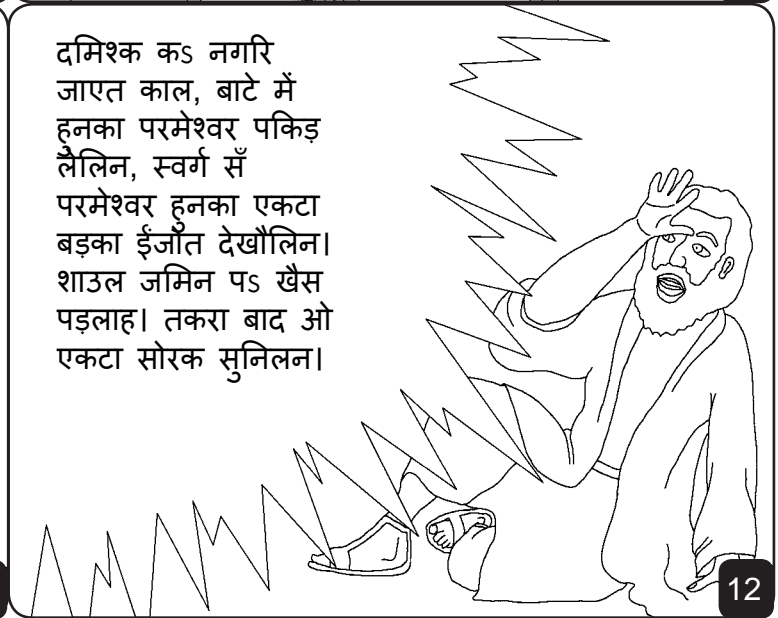 दमिश्क कऽ नगरि
जाएत काल, बाटे में
हुनका परमेश्वर पकिड़
लैलिन, स्वर्ग सँ
परमेश्वर हुनका एकटा
बड़का ईंजौत देखौलिन।
शाउल जमिन पऽ खैस
पड़लाह। तकरा बाद ओ
एकटा सोरक सुनिलन।
12